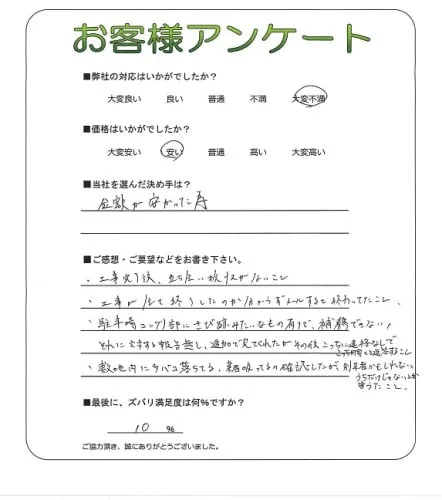 お客様アンケート
■弊社の対応はいかがでしたか？
大変良い 良い 普通 不満 大変不満
■価格はいかがでしたか？
大変安い 安い 普通 高い 大変高い
■当社を選んだ決め手は？
金額が安かった事
■ご感想・ご要望などをお書き下さい。
・工事完了後、立ち会い がないこと
・工事が全て終了したのか分からずメールすると終わってたこと、
・駐車場コンクリ部にさび跡みたいなもの有りで、補修できない!
それに対する報告無し、追加で見てくれたがその後こっちに連絡なしで
こっちから連絡すること
・敷地内にタバコ落ちてる、 吸ってるの確認したが、別業者かもしれない、
うちだけじゃないとか
言うたこと。
■最後に、ズバリ満足度は何%ですか？
10 %
ご協力頂き、誠にありがとうございました。